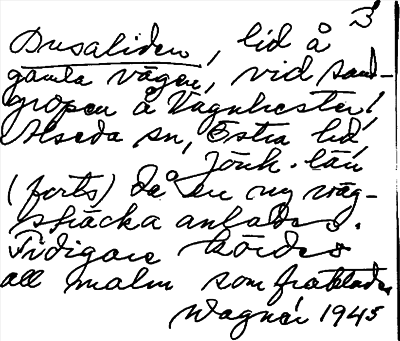 3
Dusaliden, lid å
gamla vägen, vid sand-
gropen å Vagnhester,
Alseda sn, Östra hd,
Jönk. län
(forts) då en ny väg-
sträcka anlades.
Tidigare kördes
all malm som fraktades
Wagnér 1945